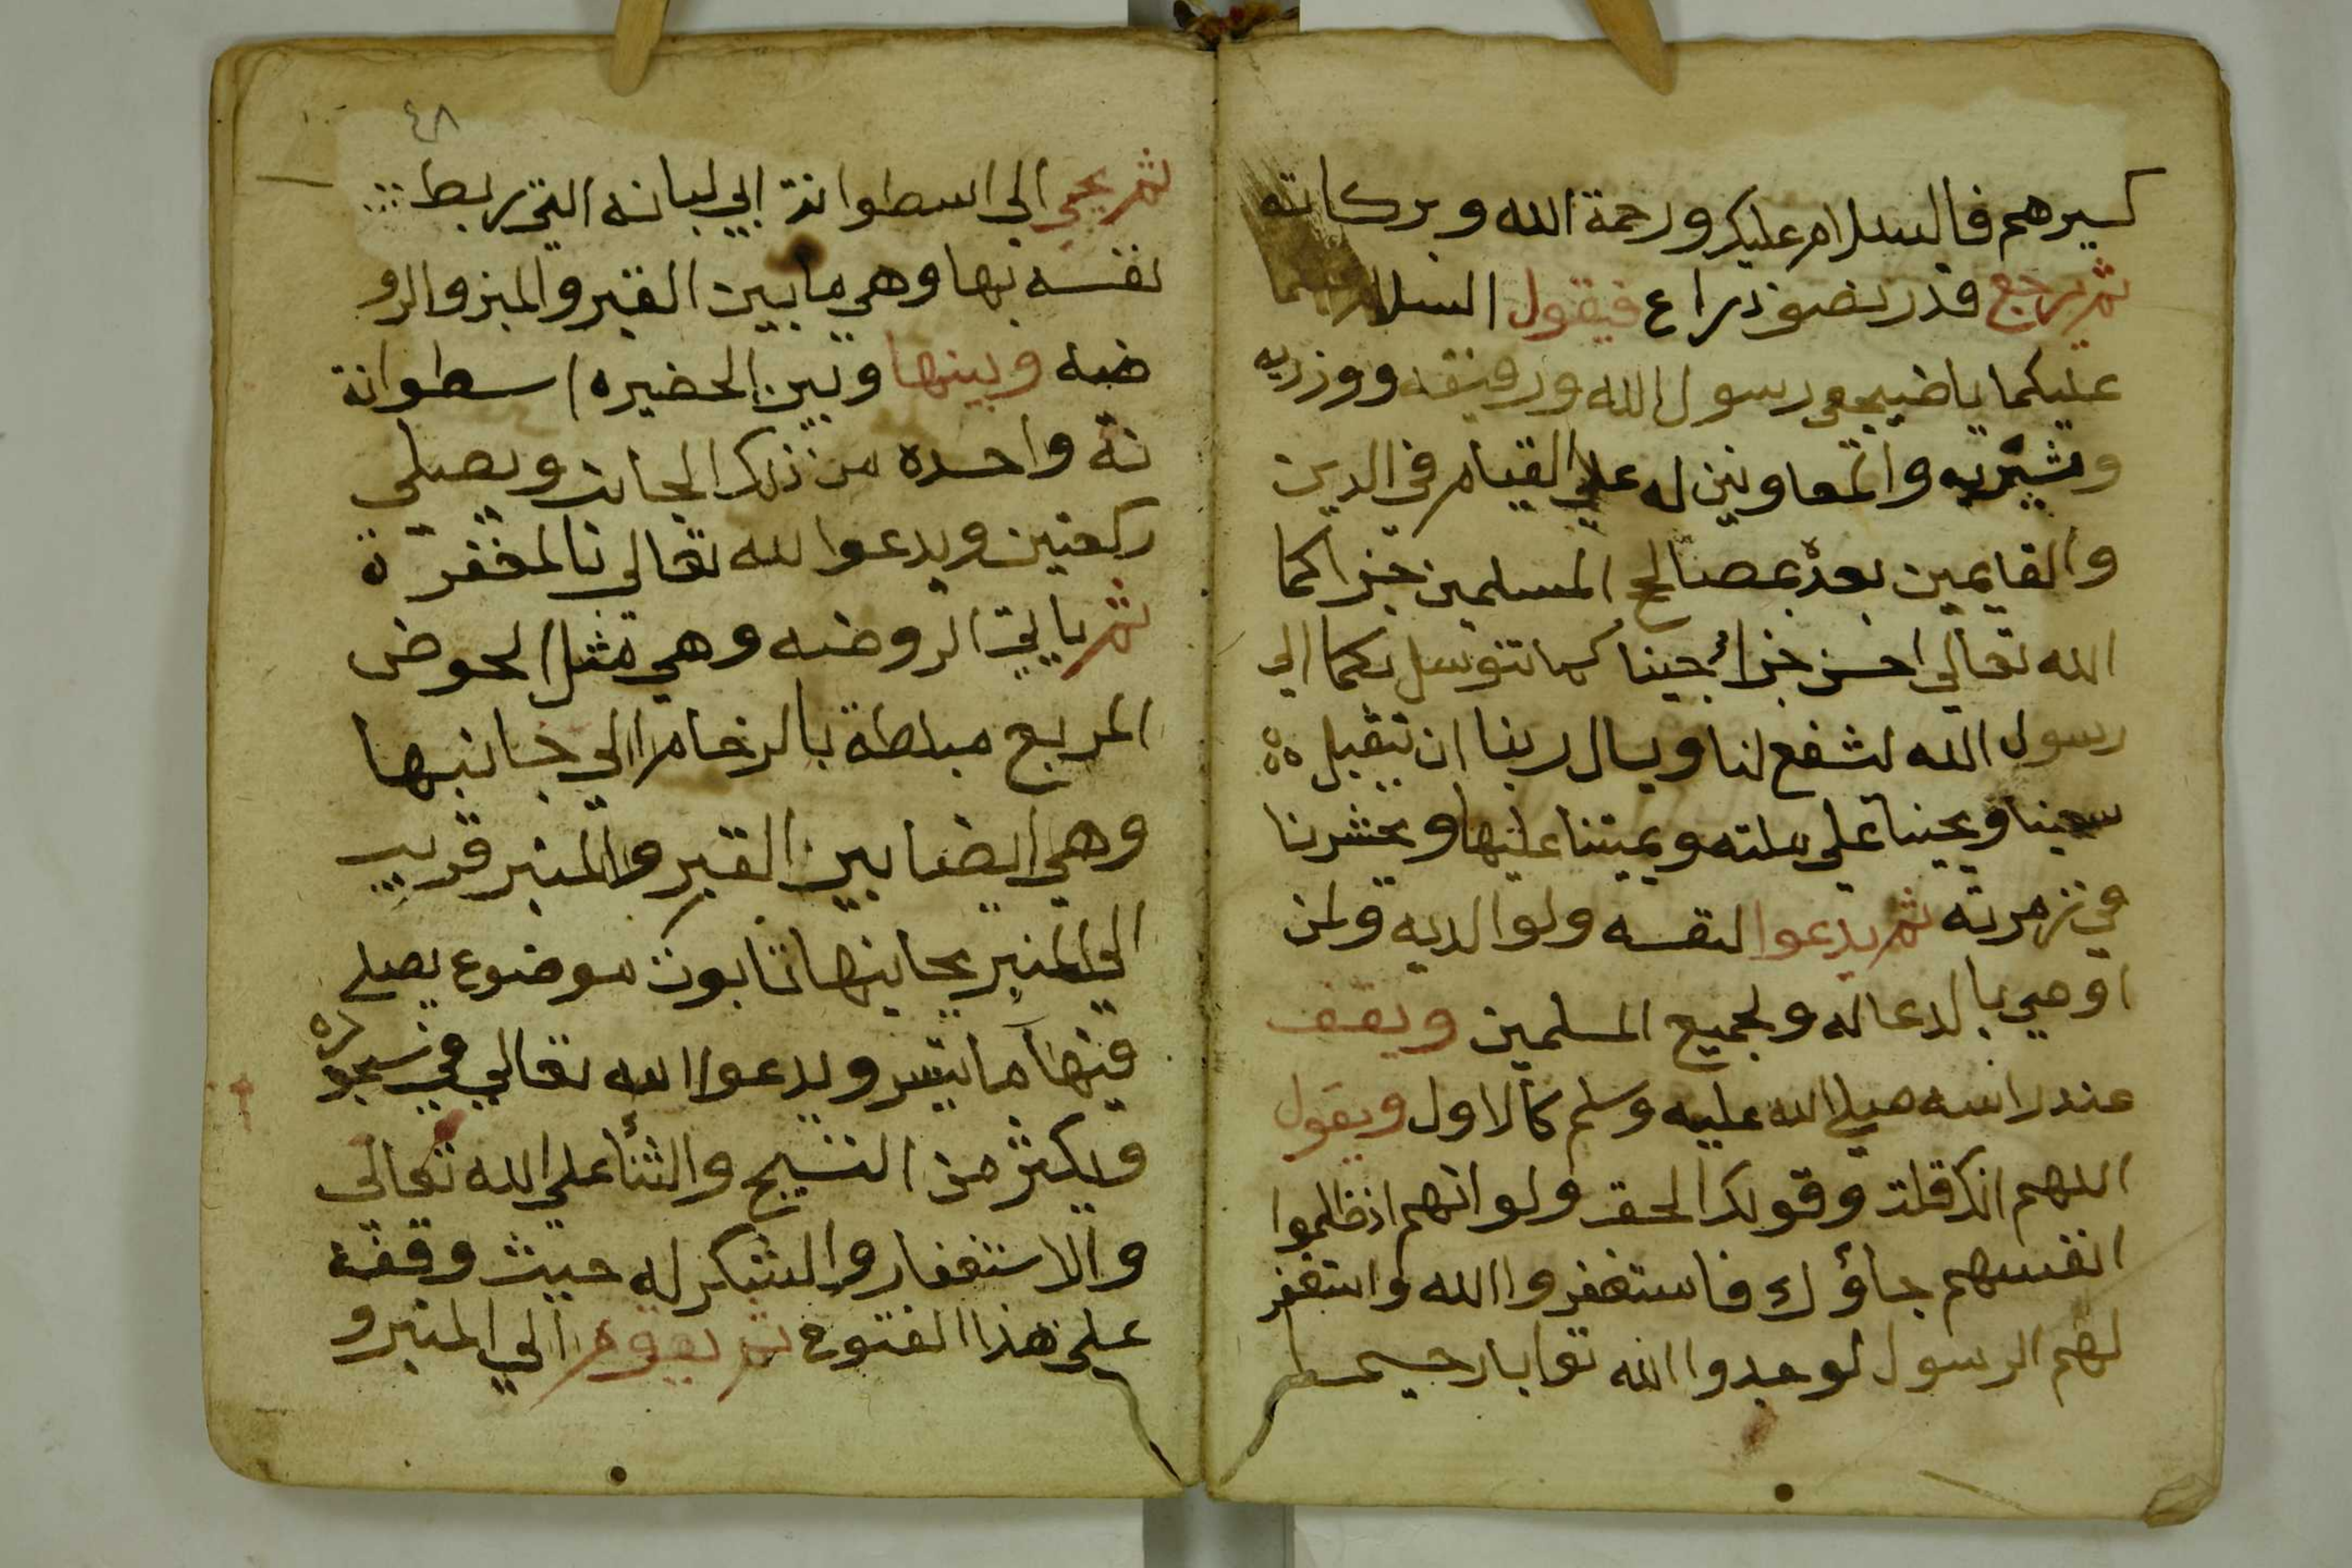 كسيرهم فالسلام عليكم ورحمة الله وبركاته
ثم يرجع قدر نصف ذراع فيقول السلام
عليكما يا ضجيعي رسول الله ورفيقه ووزريه
ومشيريه والمعاونين له علي القيام في الدين
والقايمين بعده بمصالح المسلمين جزاكما
الله تعالي احسن جزاء جيناكما نتوسل بكما الي
رسول الله لشفع لنا ويسال ربنا ان يتقبل
سعينا ويحيينا علي ملته ويميتنا عليها ويحشرنا
في زمرته ثم يدعوا لنفسه ولوالديه ولمن
اوصي بالدعا له ولجميع المسلمين ويقف
عند راسه صلي الله عليه وسلم كالاول ويقول
اللهم انك قلت وقولك الحق ولو انهم اذ ظلموا
انفسهم جاؤك فاستغفروا الله واستغفر
لهم الرسول لوجدوا الله توابا رحيما
٤٨
ثم يجي الي اسطوانة ابي لبانه التي ربط
نفسه بها وهي ما بين القبر والمنبر والرو
ضه وبينها وبين الحضيره اسطوانة
نة واحده من ذلك الجانب ويصلي
ركعتين ويدعوا لله تعالي بالمغفرة
ثم ياتي الروضه وهي مثل الحوض
المربع مبلطة بالرخام الي جانبها
وهي ايضا بين القبر والمنبر قريب
الي المنبر بجانبها تابوت موضوع يصلي
فيها ما تيسر ويدعوا الله تعالي في سجوده
ويكثر من التسبيح والثناء علي الله تعالي
والاستغفار والشكر له حيث وفقه
علي هذا الفتوح ثم يقوم الي المنبر و